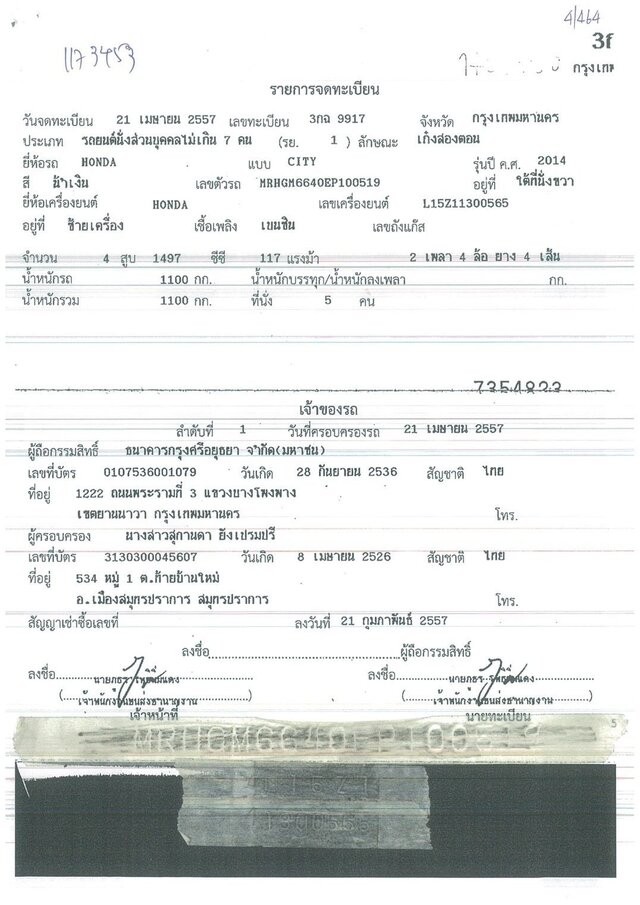 4/464
1173453
3f
กรุงเทพ
รายการจดทะเบียน
วันจดทะเบียน 21 เมษายน 2557 เลขทะเบียน 3กฉ 9917 จังหวัด กรุงเทพมหานคร
ประเภท รถยนต์นั่งส่วนบุคคลไม่เกิน 7 คน (รย. 1 ) ลักษณะ เก๋งสองตอน
ยี่ห้อรถ HONDA แบบ CITY รุ่นปี ค.ศ. 2014
สี น้ำเงิน เลขตัวรถ MRHGM6640EP100519 อยู่ที่ ใต้ที่นั่งขวา
ยี่ห้อเครื่องยนต์ HONDA เลขเครื่องยนต์ L15Z11300565
อยู่ที่ ซ้ายเครื่อง เชื้อเพลิง เบนซิน เลขถังแก๊ส
จำนวน 4 สูบ 1497 ซีซี 117 แรงม้า 2 เพลา 4 ล้อ ยาง 4 เส้น
น้ำหนักรถ 1100 กก. น้ำหนักบรรทุก/น้ำหนักลงเพลา กก.
น้ำหนักรวม 1100 กก. ที่นั่ง 5 คน
7354823
เจ้าของรถ
ลำดับที่ 1 วันที่ครอบครองรถ 21 เมษายน 2557
ผู้ถือกรรมสิทธิ์ ธนาคารกรุงศรีอยุธยา จำกัด(มหาชน)
เลขที่บัตร 0107536001079 วันเกิด 28 กันยายน 2536 สัญชาติ ไทย
ที่อยู่ 1222 ถนนพระรามที่ 3 แขวงบางโพงพาง
เขตยานนาวา กรุงเทพมหานคร โทร.
ผู้ครอบครอง นางสาวสุกานดา ยิ่งเปรมปรี
เลขที่บัตร 3130300045607 วันเกิด 8 เมษายน 2526 สัญชาติ ไทย
ที่อยู่ 534 หมู่ 1 ต.ท้ายบ้านใหม่
อ.เมืองสมุทรปราการ สมุทรปราการ โทร.
สัญญาเช่าซื้อเลขที่ ลงวันที่ 21 กุมภาพันธ์ 2557
ลงชื่อ ผู้ถือกรรมสิทธิ์
ลงชื่อ ลงชื่อ
(เจ้าพนักงานขนส่งชำนาญงาน) (เจ้าพนักงานขนส่งชำนาญงาน)
เจ้าหน้าที่ นายทะเบียน
5